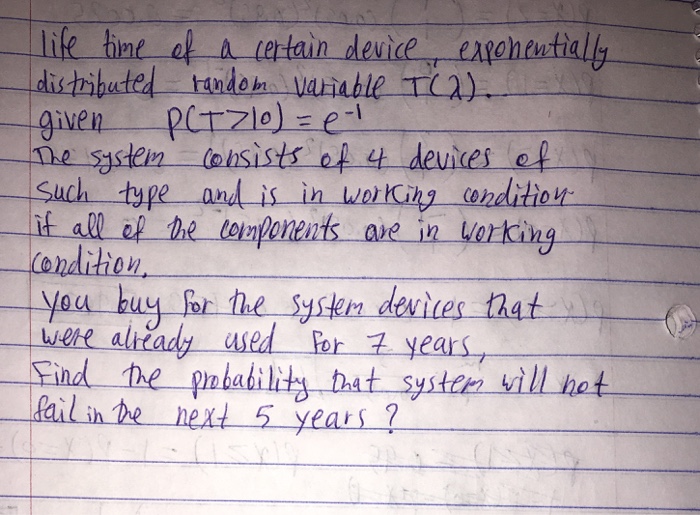 life time of a certain device, exponentially
distributed random variable T(λ).
given P(T>10) = e⁻¹
The system consists of 4 devices of
such type and is in working condition
if all of the components are in working
condition.
you buy for the system devices that
were already used for 7 years,
Find the probability that system will not
fail in the next 5 years?